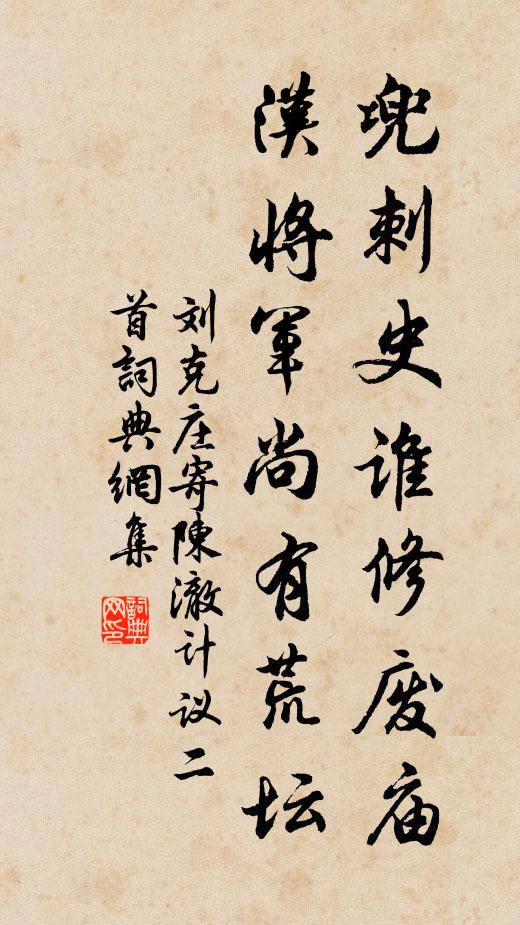 刺史谁修废庙
漢将軍尚有荒坛
刘克庄寄陳澈计议二
首詞典網集
詞典网印